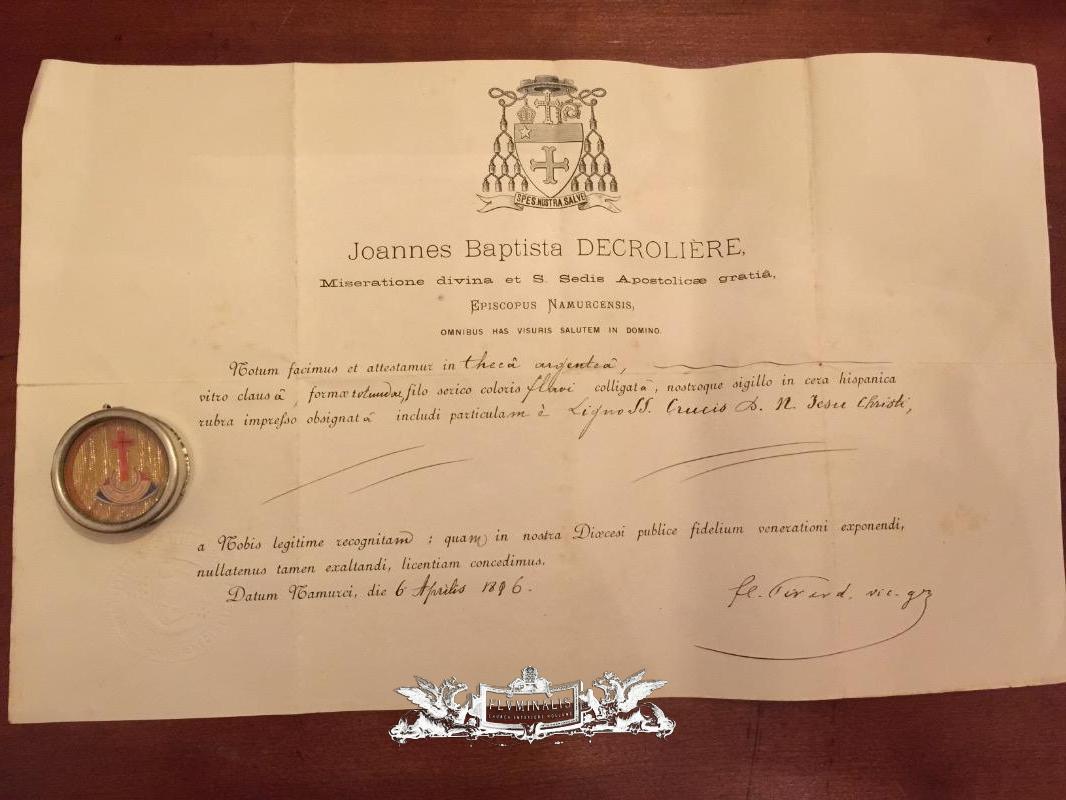 SPES NOSTRA SALVE
Joannes Baptista DECROLIÈRE,
Miseratione divina et S. Sedis Apostolicæ gratiâ,
EPISCOPUS NAMURCENSIS,
OMNIBUS HAS VISURIS SALUTEM IN DOMINO.
Notum facimus et attestamur in thecâ argenteâ,
vitro clausâ, formæ rotundae, filo serico coloris flavi colligatâ, nostroque sigillo in cera hispanica
rubra impresso obsignatâ includi particulam è Ligno SS. Crucis D. N. Jesu Christi,
a Nobis legitime recognitam ; quam in nostra Diœcesi publice fidelium venerationi exponendi,
nullatenus tamen exaltandi, licentiam concedimus.
Datum Namurci, die 6 Aprilis 1896.
vic. g
FLVMINALIS
CHURCH INTERIORS HOLLAND